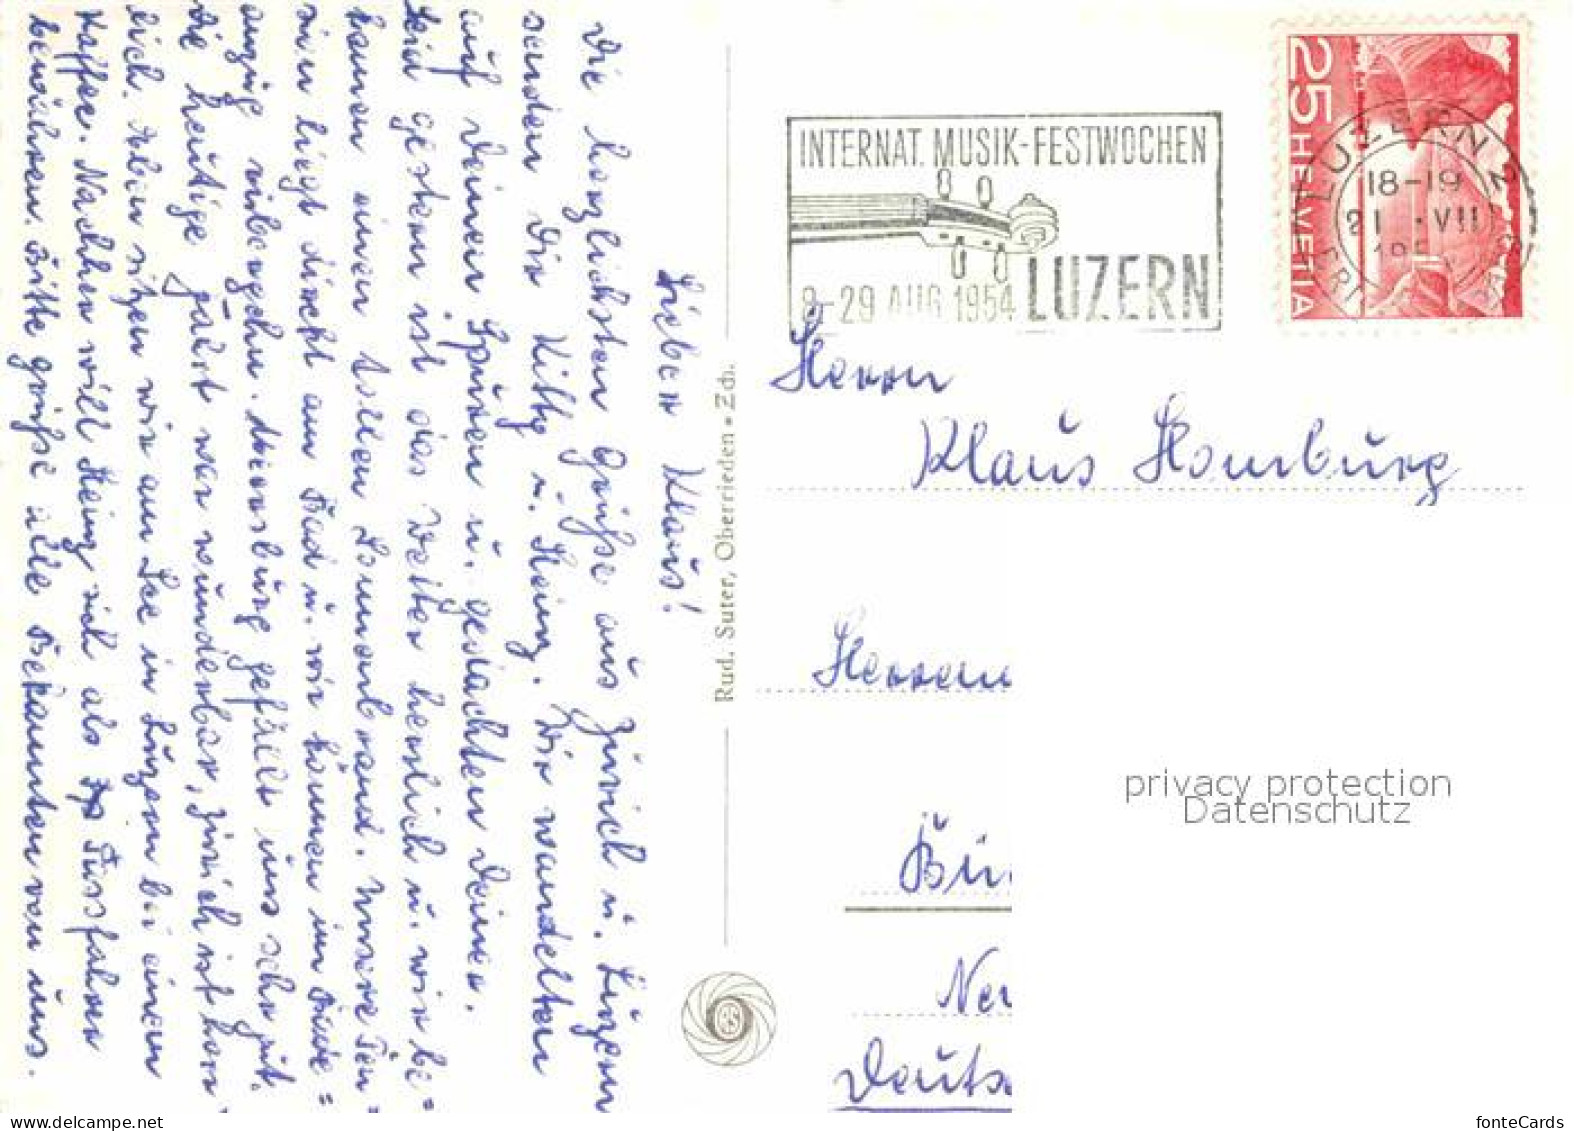 Lieber Klaus!
Die herzlichsten Grüße aus Zürich u. Luzern
senden Dir Kitty u. Heinz. Wir wandelten
auf Deinen Spuren u. gedachten Deiner.
Seid gestern ist das Wetter herrlich u. wir be=
kamen einen tollen Sonnenbrand. Unsere Pen=
sion liegt dicht am Bad u. wir können im Bade=
anzug rübergehn. Meersburg gefällt uns sehr gut.
Die heutige Fahrt war wunderbar, Zürich ist herr-
lich. Aber sitzen wir am See in Luzern bei einem
Kaffee. Nachher will Heinz sich als Fussfahrer
bewähren. Bitte grüße alle Bekannten von uns.
Rud. Suter, Oberrieden • Zch.
INTERNAT. MUSIK-FESTWOCHEN
8-29 AUG 1954 LUZERN
25 HELVETIA
LUZERN 2
18-19
21 · VII
Herrn
Klaus Homburg
Herren
Deuts
privacy protection
Datenschutz
www.delcampe.net
fonteCards